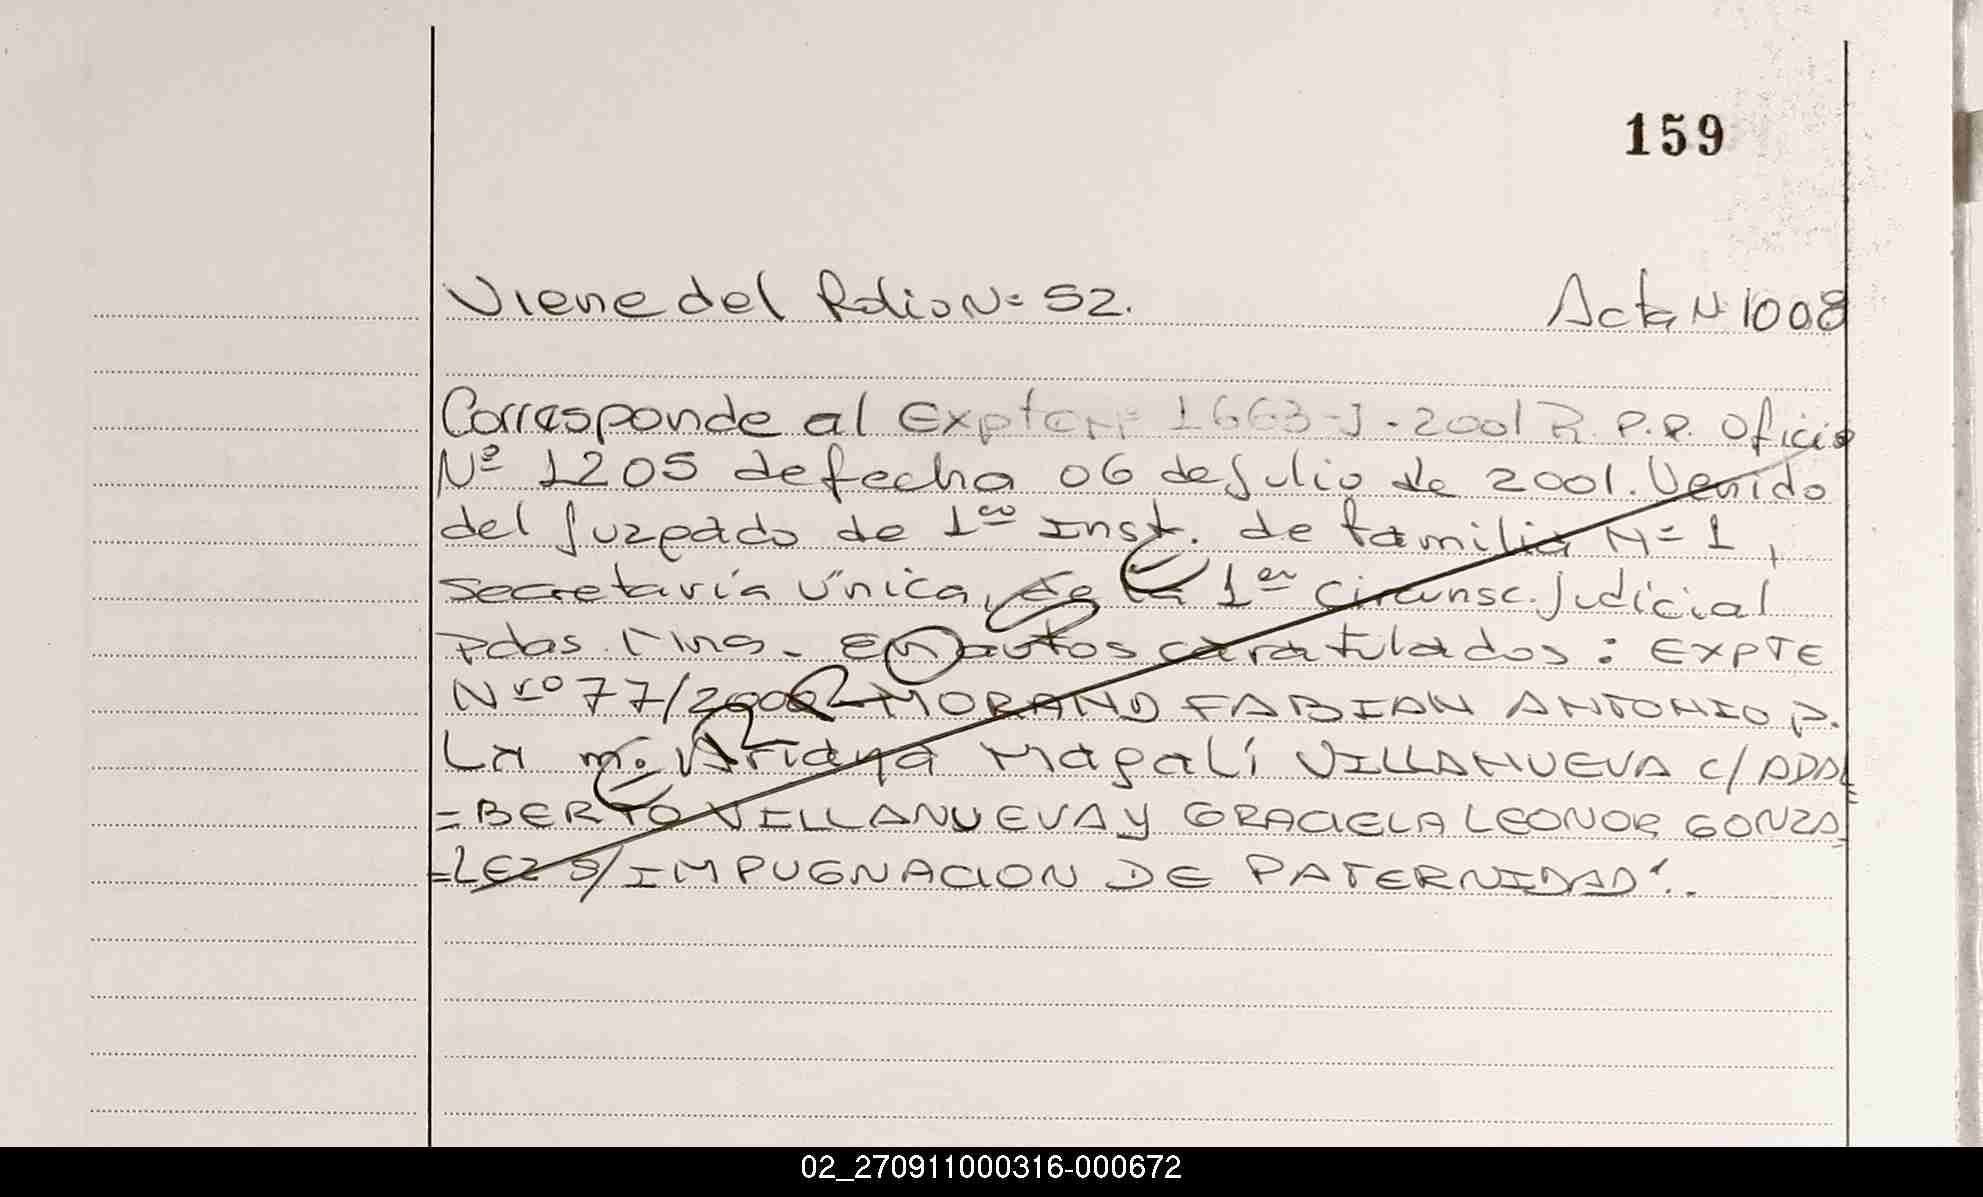 159
Viene del Folio N= 52. Acta N 1008
Corresponde al Expte nº 1663-J-2001 R.P.P. Oficio
Nº 1205 de fecha 06 de Julio de 2001. Venido
del Juzgado de 1ra Inst. de familia N=1,
secretaría Única, de la 1er Circunsc. Judicial
Pdas. Mnes. En autos caratulados: EXPTE
Nro 77/2000 MORAND FABIAN ANTONIO P.
La m. Ariana Magalí VILLANUEVA C/ ADAL
=BERTO VILLANUEVA Y GRACIELA LEONOR GONZA
=LEZ S/ IMPUGNACION DE PATERNIDAD".
02_270911000316-000672